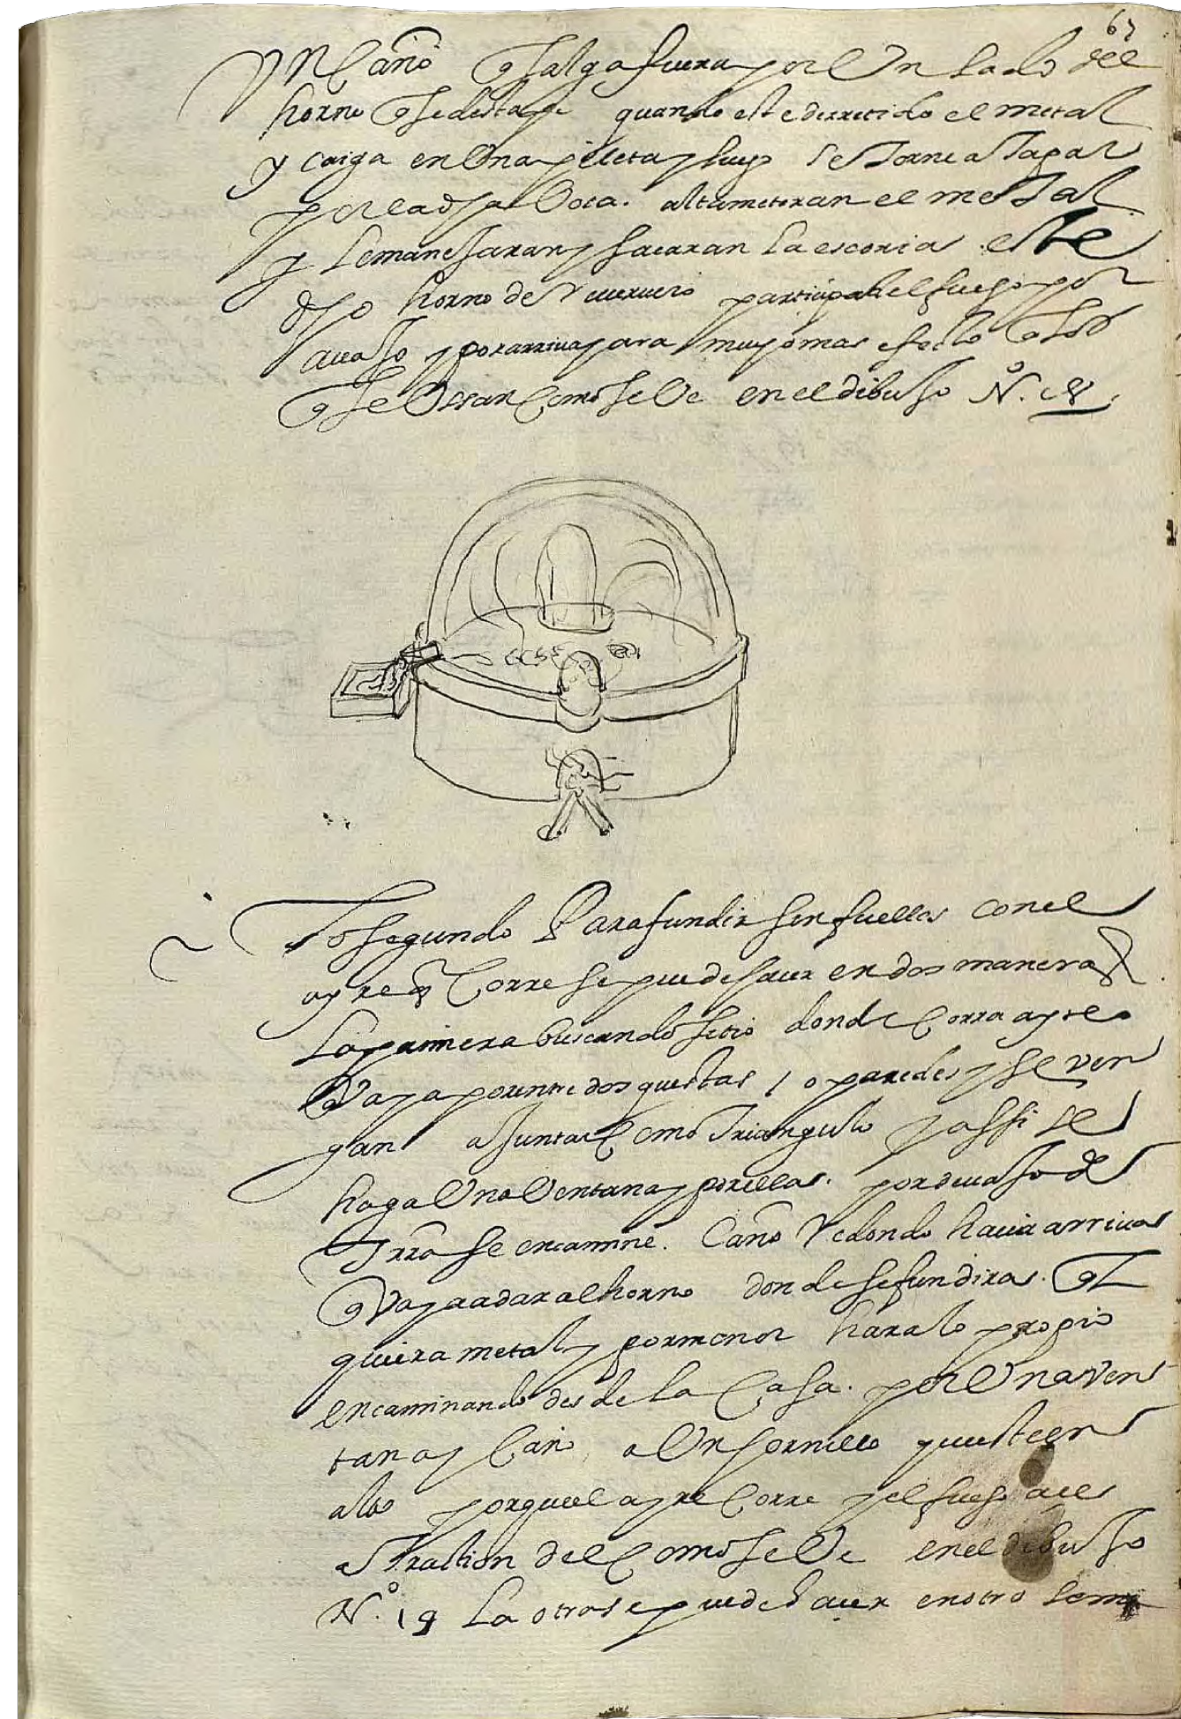 67
Un caño q salga fuera por el Un lado del
horno q se destape quando este derretido el metal
y caiga en Una pileta y luego se torne a tapar
por la dha boca. alli meteran el metal
y le manejaran y sacaran la escoria este
dho horno de reververo participa del fuego por
avajo y por arriva para muy mas efecto
q se Usan como se Ve en el dibujo N.º
Lo segundo Para fundir sin fuelles con el
ayre q Corre se puede hacer en dos maneras
La primera buscando sitio donde Corra ayre
q Vaya por entre dos questas / o paredes y se ven
gan a juntar Como triangulo y assi se
haga Una Ventana y por ellas. por devajo de
trra se encamine. Caño redondo hacia arriva
q Vaya a dar al horno donde se fundira.
quiera metal y por menor hara lo propio
encaminando desde la Casa. por Una Ven
tana y Caño a Un hornillo que este en
alto porque el ayre Corre y el fuego
atraction del Como se Ve en el dibujo
N.º 19 La otra se puede hacer en otro